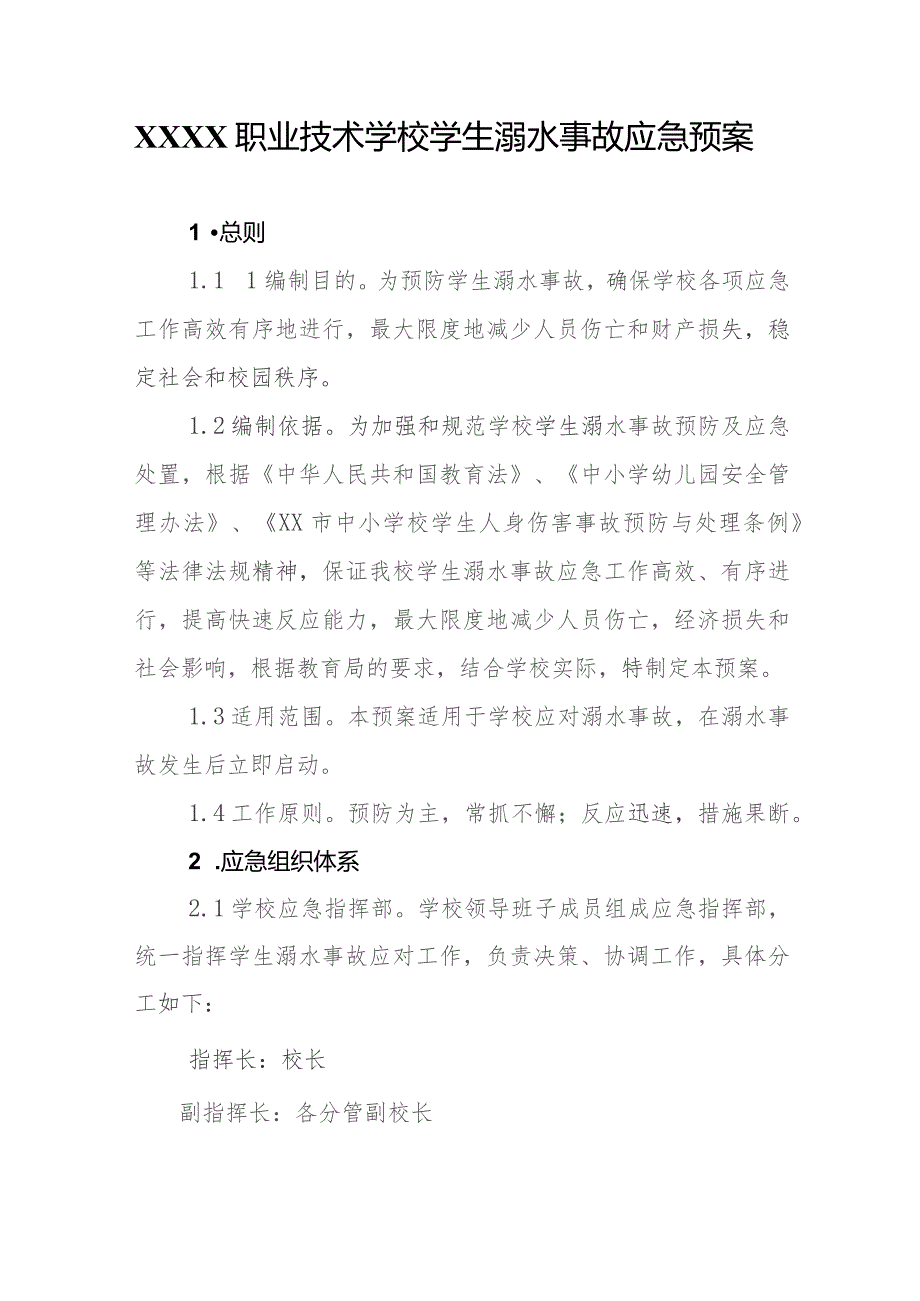 XXXX职业技术学校学生溺水事故应急预案
1•总则
1.1 1编制目的。为预防学生溺水事故，确保学校各项应急
工作高效有序地进行，最大限度地减少人员伤亡和财产损失，稳
定社会和校园秩序。
1.2编制依据。为加强和规范学校学生溺水事故预防及应急
处置，根据《中华人民共和国教育法》、《中小学幼儿园安全管
理办法》、《XX市中小学校学生人身伤害事故预防与处理条例》
等法律法规精神，保证我校学生溺水事故应急工作高效、有序进
行，提高快速反应能力，最大限度地减少人员伤亡，经济损失和
社会影响，根据教育局的要求，结合学校实际，特制定本预案。
1.3适用范围。本预案适用于学校应对溺水事故，在溺水事
故发生后立即启动。
1.4工作原则。预防为主，常抓不懈；反应迅速，措施果断。
2 .应急组织体系
2.1学校应急指挥部。学校领导班子成员组成应急指挥部，
统一指挥学生溺水事故应对工作，负责决策、协调工作，具体分
工如下：
指挥长：校长
副指挥长：各分管副校长